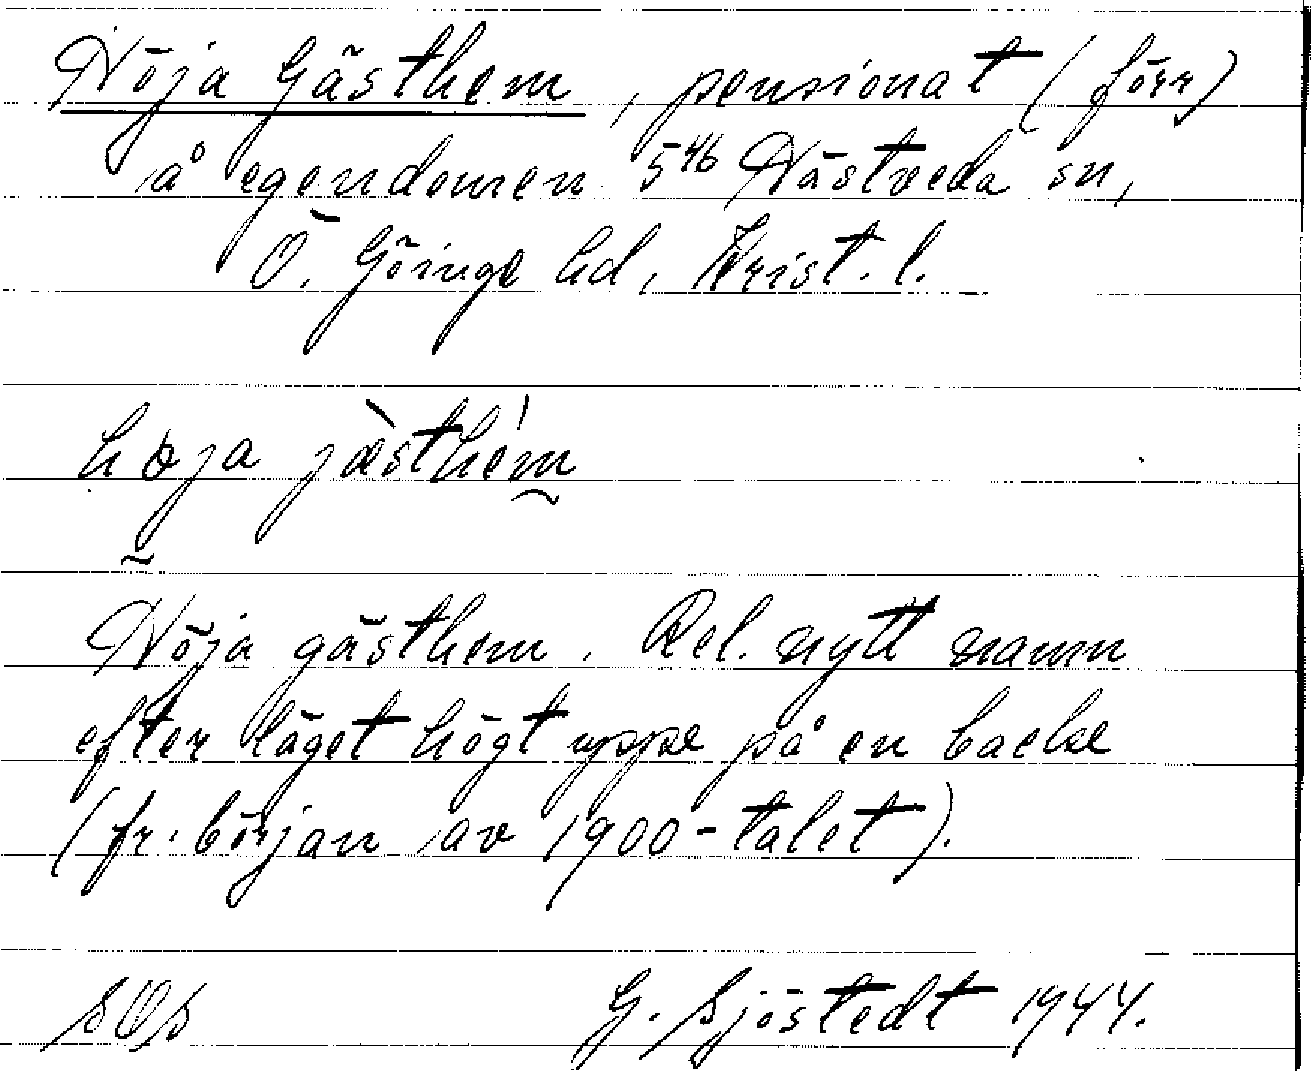 Höja Gästhem, pensionat (förr)
å egendomen 5⁴⁶ Hästveda sn,
Ö. Göinge hd, Krist. l.
høja jæ̀sthém
Höja gästhem. Rel. nytt namn
efter läget högt uppe på en backe
(fr. början av 1900-talet).
G. Sjöstedt 1944.